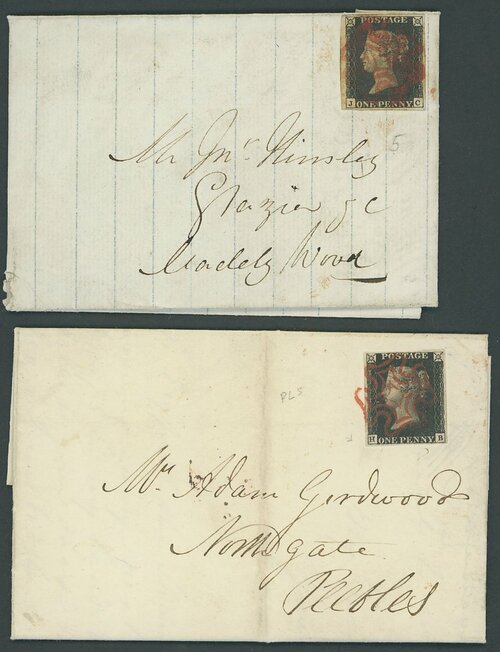 POSTAGE
J C
ONE PENNY
5
Mr Jn.r Kinsley
Glazier &c
Madely Wood
POSTAGE
H B
ONE PENNY
PLS
Mr Adam Gordwood
Northgate
Peebles